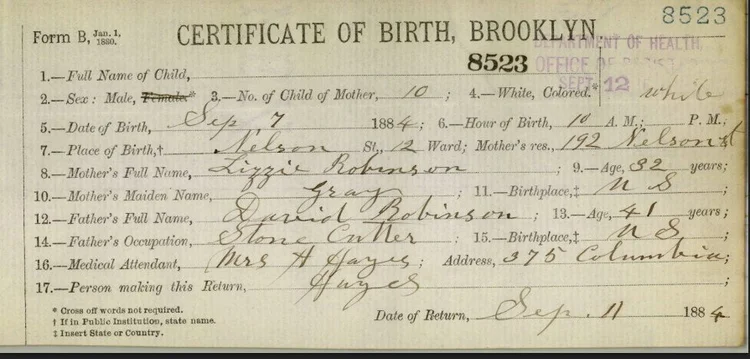 8523
Form B, Jan. 1, 1880. CERTIFICATE OF BIRTH, BROOKLYN.
8523 DEPARTMENT OF HEALTH,
OFFICE OF
SEPT 12
1.—Full Name of Child,
2.—Sex: Male, Female* 3.—No. of Child of Mother, 10; 4.—White, Colored.* white
5.—Date of Birth, Sep 7 1884; 6.—Hour of Birth, 10 A. M.; P. M.;
7.—Place of Birth,† Nelson St., 12 Ward; Mother's res., 192 Nelson st
8.—Mother's Full Name, Lizzie Robinson 9.—Age, 32 years;
10.—Mother's Maiden Name, Gray; 11.—Birthplace,‡ U S;
12.—Father's Full Name, David Robinson; 13.—Age, 41 years;
14.—Father's Occupation, Stone Cutter; 15.—Birthplace,‡ U S;
16.—Medical Attendant, Mrs H Hayes; Address, 375 Columbia;
17.—Person making this Return, Hayes;
* Cross off words not required.
† If in Public Institution, state name.
‡ Insert State or Country.
Date of Return, Sep. 11 1884